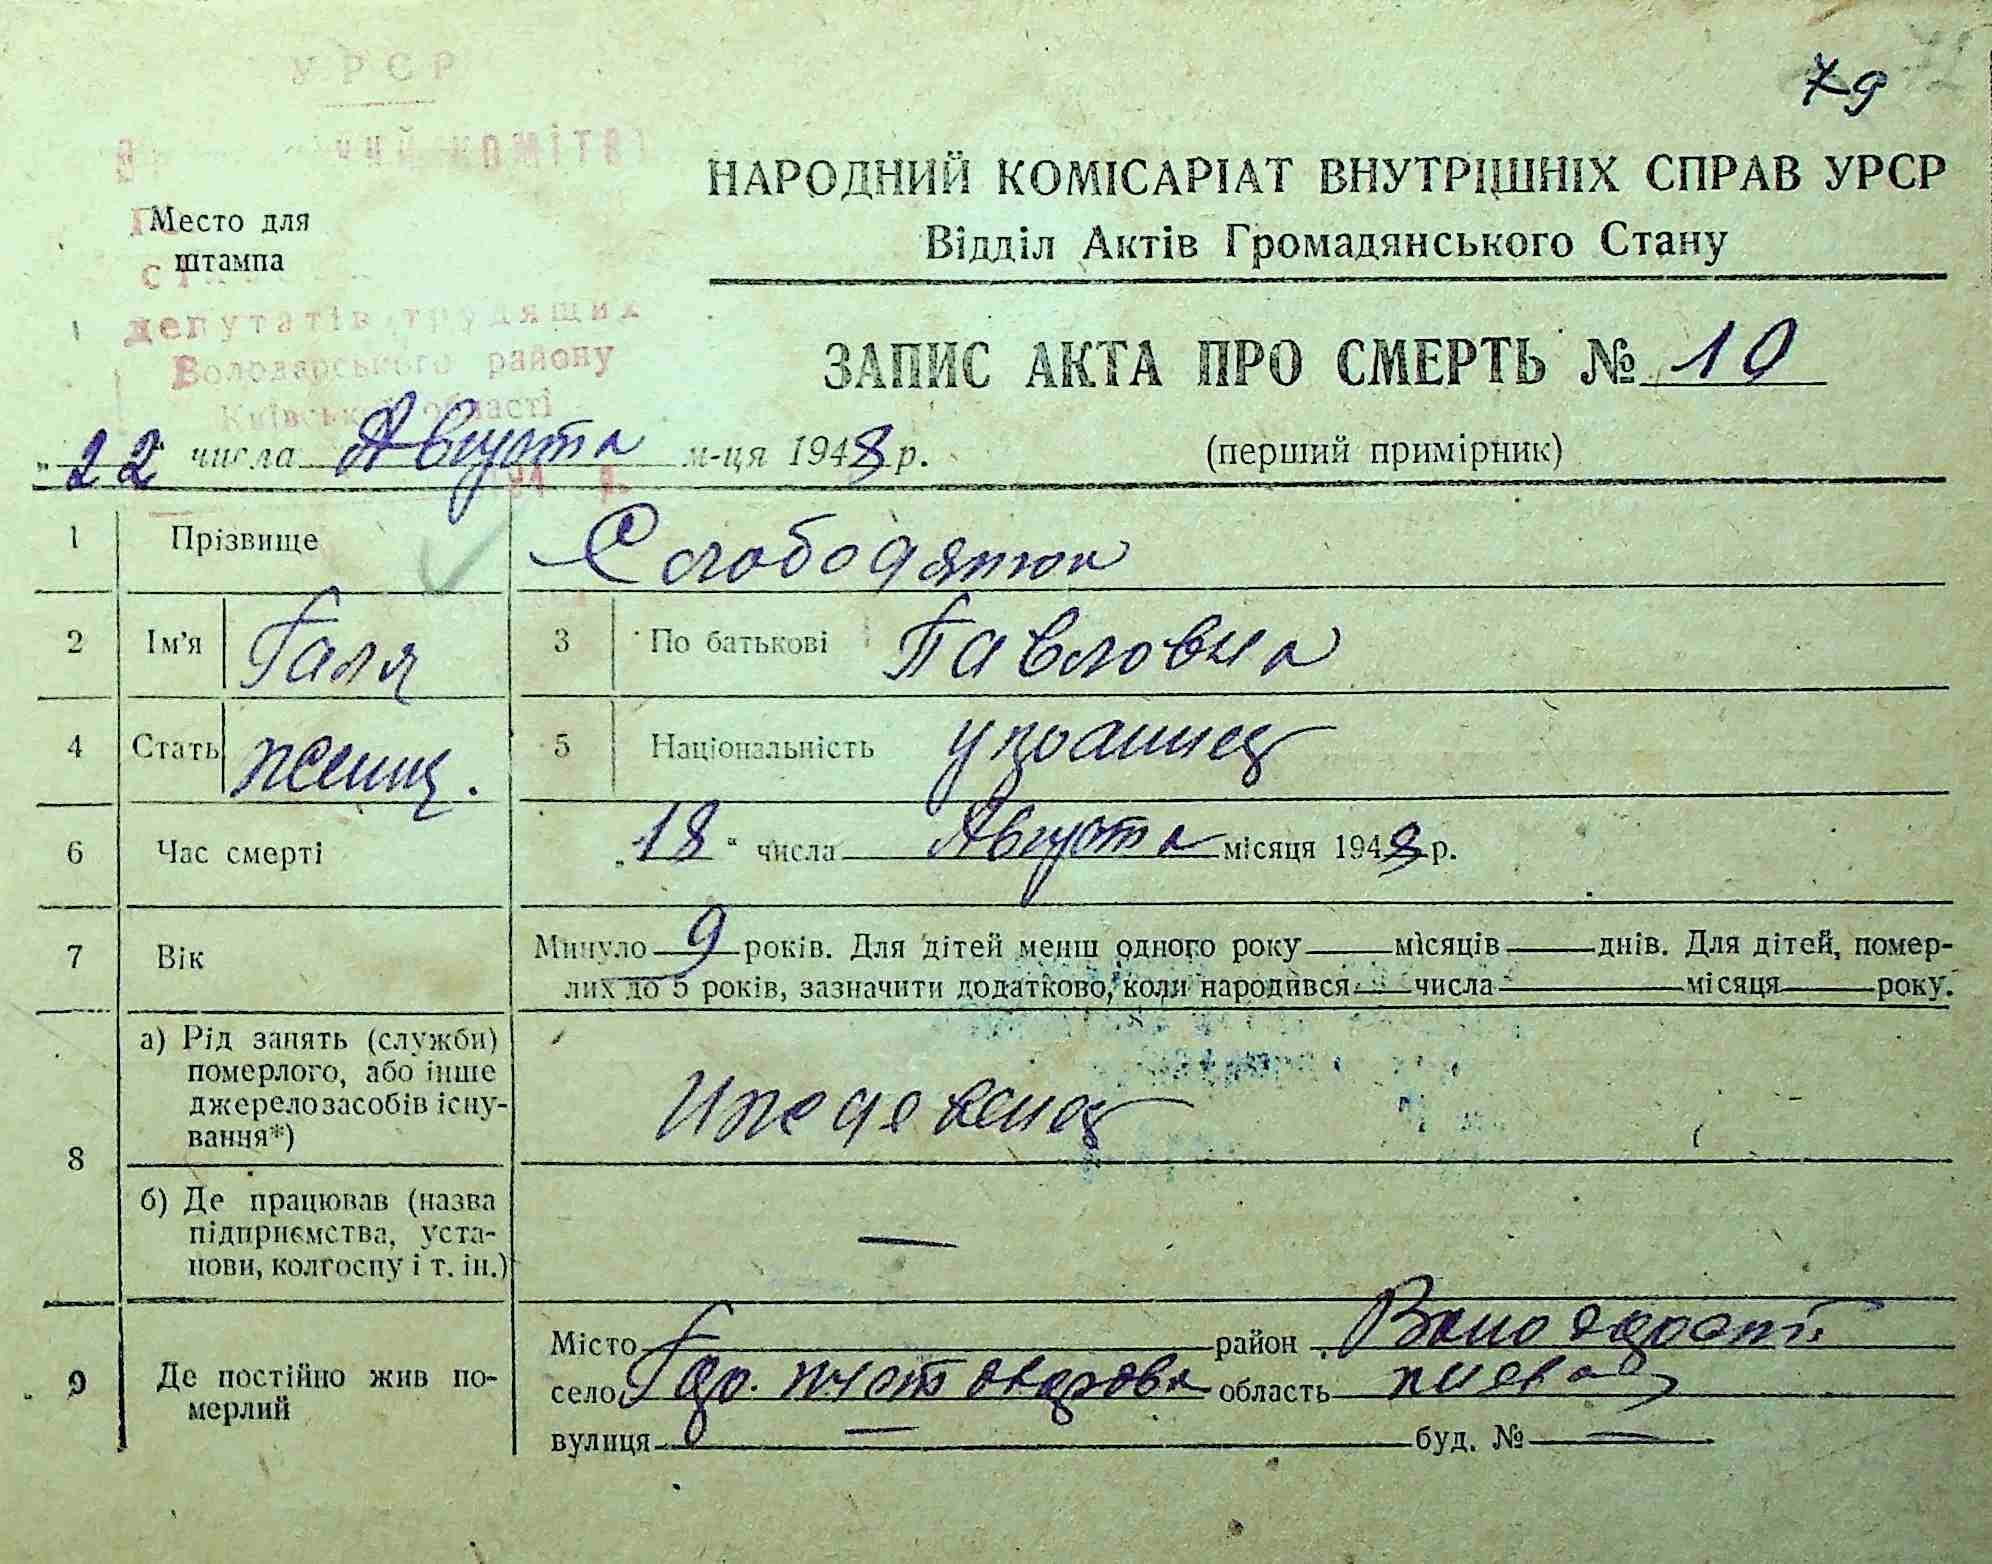 УРСР
79
чий комітет
НАРОДНИЙ КОМІСАРІАТ ВНУТРІШНІХ СПРАВ УРСР
Відділ Актів Громадянського Стану
Место для
штампа
депутатів трудящих
Володарського району
Київської області
ЗАПИС АКТА ПРО СМЕРТЬ № 10
(перший примірник)
„22 числа Августа м-ця 1948 р.
1 Прізвище Слободянюк
2 Ім'я Галя 3 По батькові Павловна
4 Стать женщ. 5 Національність
6 Час смерті „18“ числа Августа місяця 1948 р.
7 Вік Минуло 9 років. Для дітей менш одного року — місяців — днів. Для дітей, помер-
лих до 5 років, зазначити додатково, коли народився — числа — місяця — року.
8 а) Рід занять (служби)
померлого, або інше
джерело засобів існу-
вання*)
Иждевенец
б) Де працював (назва
підприємства, уста-
нови, колгоспу і т. ін.)
—
9 Де постійно жив по-
мерлий
Місто район
село область
вулиця — буд. № —